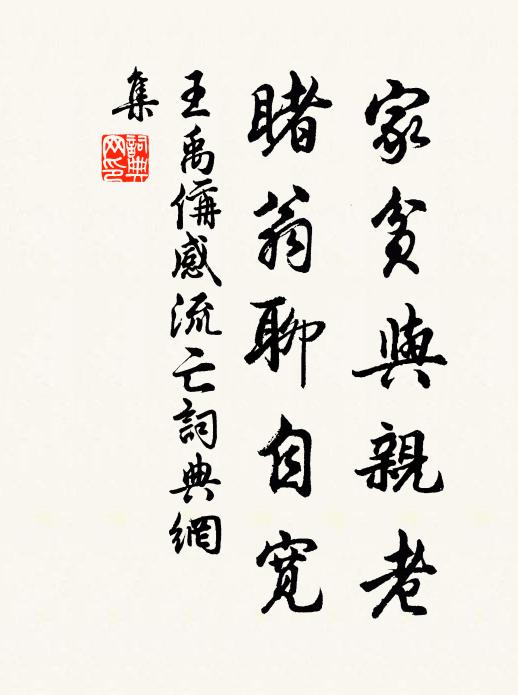 家貧與親老
睹翁聊自寬
王禹偁感流亡詞典網
集
詞典
网印